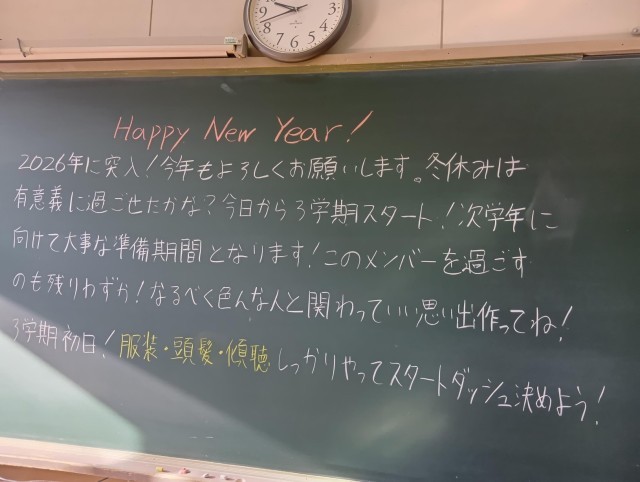 Happy New Year!
2026年に突入!今年もよろしくお願いします。冬休みは
有意義に過ごせたかな?今日から3学期スタート!次学年に
向けて大事な準備期間となります!このメンバーを過ごす
のも残りわずか!なるべく色んな人と関わっていい思い出作ってね!
3学期初日!服装・頭髪・傾聴しっかりやってスタートダッシュ決めよう!